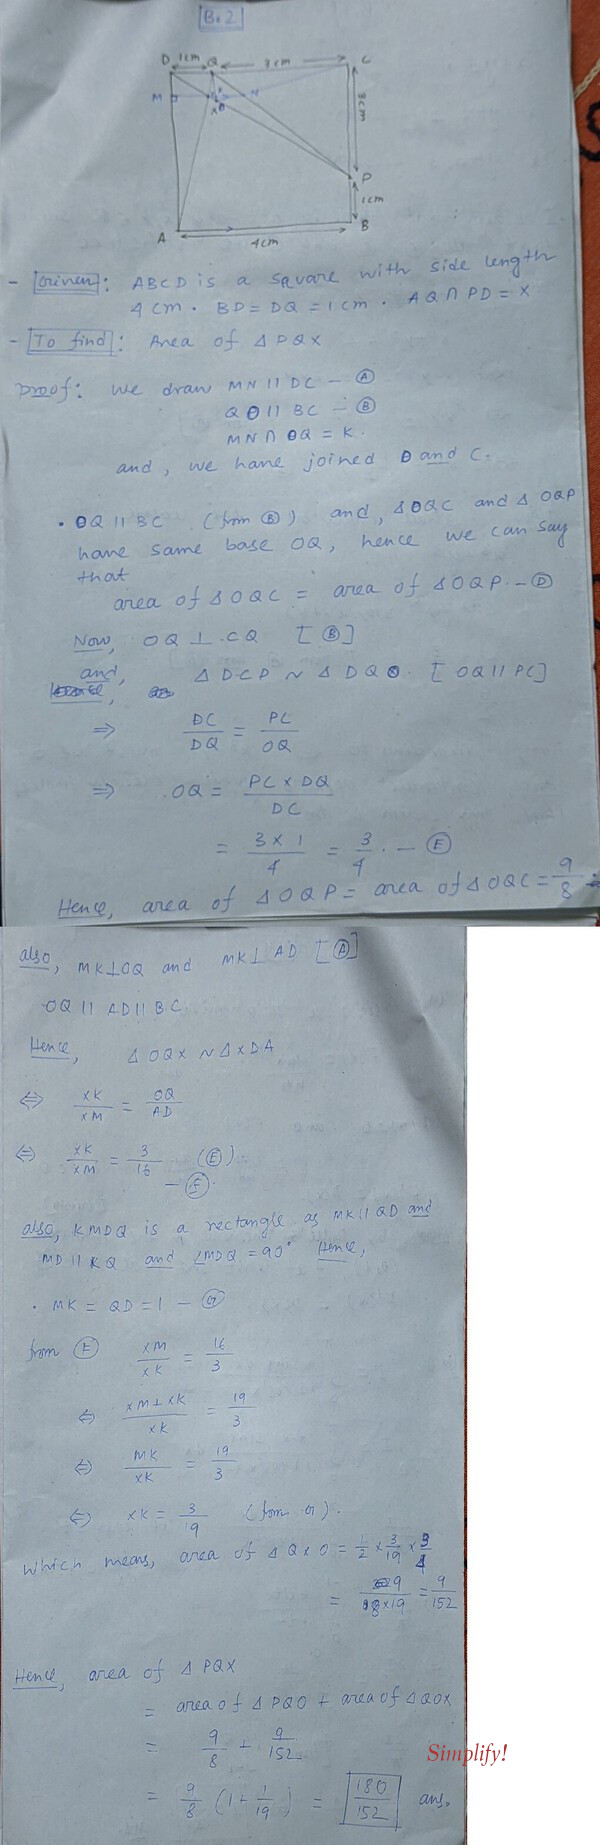 B.2
D 1cm Q 3cm C
M K N
X O
3cm
P
1cm
A 4cm B
- Given: ABCD is a square with side length
4cm. BD = DQ = 1cm. AQ ∩ PD = X
- To find: Area of △PQX
Proof: We draw MN || DC - Ⓐ
QO || BC - Ⓑ
MN ∩ OQ = K.
and, we have joined O and C.
• OQ || BC (from Ⓑ) and, △OQC and △OQP
have same base OQ, hence we can say
that
area of △OQC = area of △OQP - Ⓓ
Now, OQ ⊥ CQ [Ⓑ]
and, △DCP ~ △DQO. [OQ || PC]
⇒ DC/DQ = PC/OQ
⇒ OQ = PC × DQ/DC
= 3 × 1/4 = 3/4 . - Ⓔ
Hence, area of △OQP = area of △OQC = 9/8
also, MK ⊥ OQ and MK ⊥ AD [Ⓐ]
OQ || AD || BC
Hence, △OQX ~ △XDA
⇔ XK/XM = OQ/AD
⇔ XK/XM = 3/16 (Ⓔ)
- Ⓕ
also, KMDQ is a rectangle as MK || QD and
MD || KQ and ∠MDQ = 90° Hence,
• MK = QD = 1 - Ⓖ
from Ⓕ XM/XK = 16/3
⇔ XM + XK/XK = 19/3
⇔ MK/XK = 19/3
⇔ XK = 3/19 (from G).
which means, area of △QXO = 1/2 × 3/19 × 3/4
= 9/8×19 = 9/152
Hence, area of △PQX
= area of △PQO + area of △QOX
= 9/8 + 9/152
Simplify!
= 9/8 (1 + 1/19) = 180/152 ans.